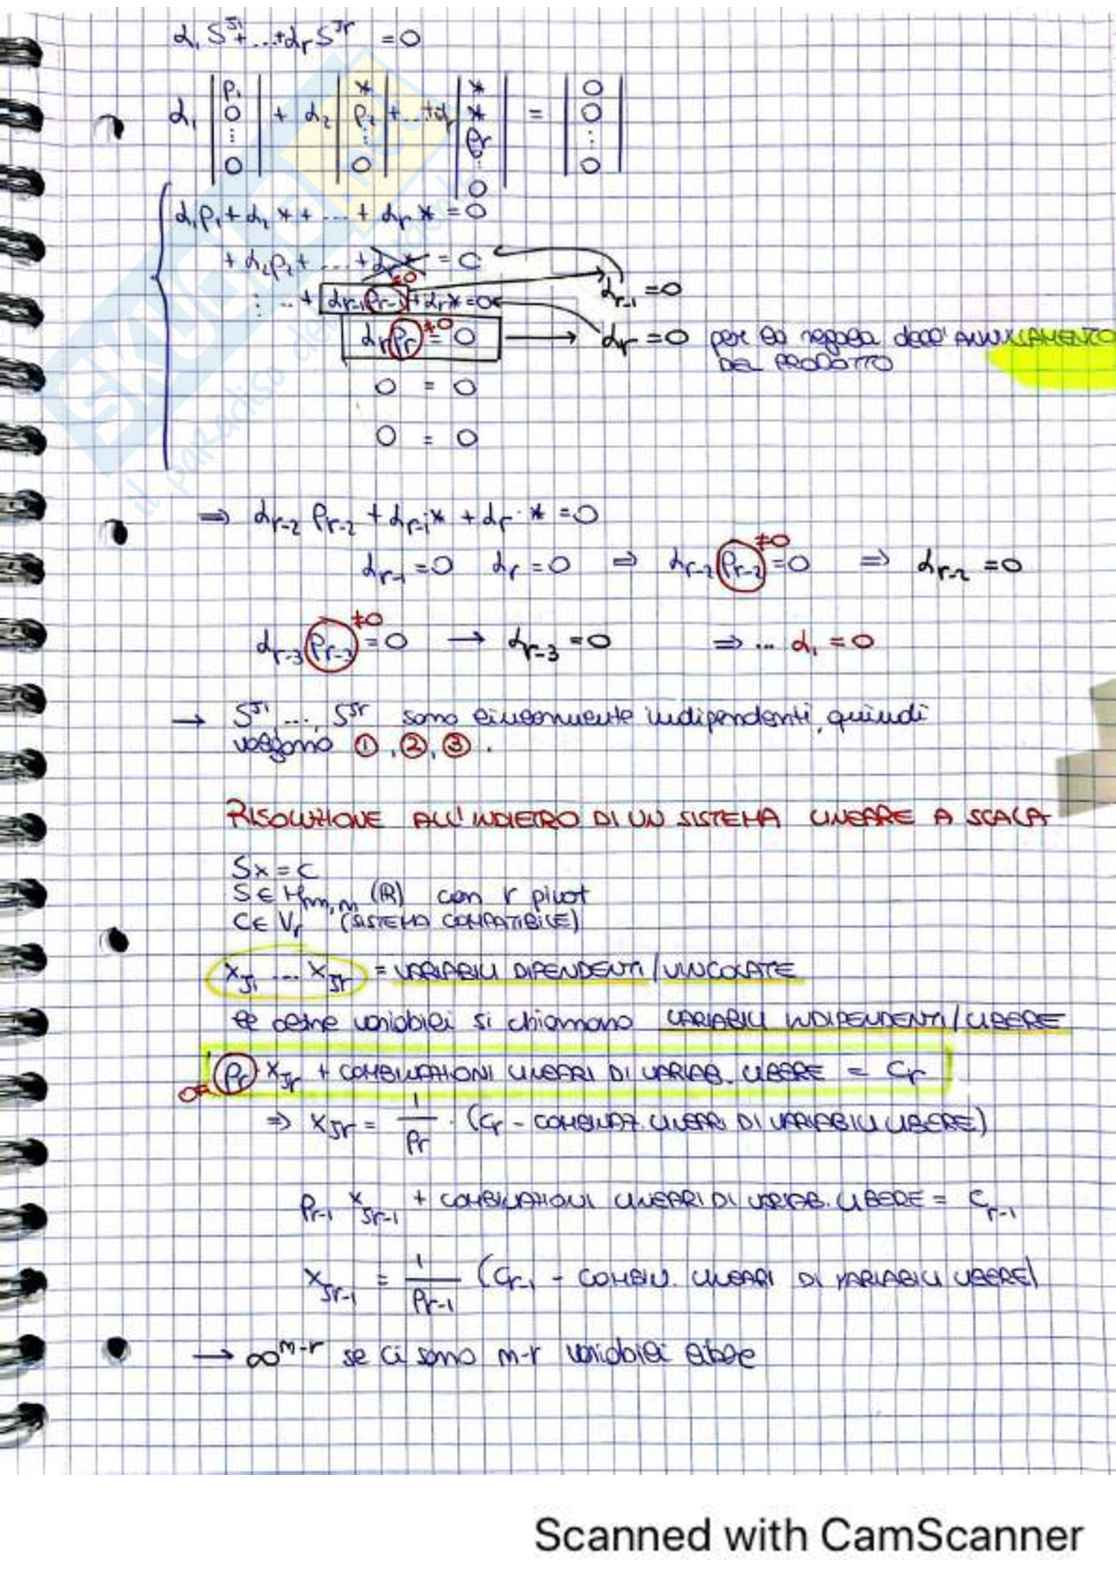 α₁ S^{j1} + ... + αr S^{jr} = 0
α₁ |p₁ 0 ⋮ 0| + α₂ |* p₂ ⋮ 0| + ... + αr |* * pr ⋮ 0| = |0 0 ⋮ 0|
α₁p₁ + α₂ * + ... + αr * = 0
+ α₂p₂ + ... + αr * = 0
⋮ ... + αr-1 pr-1 + αr * = 0 ≠0 αr-1 = 0
αr pr = 0 ≠0 → αr = 0 per la regola dell'ANNULLAMENTO
DEL PRODOTTO
0 = 0
0 = 0
⇒ αr-2 pr-2 + αr-1 * + αr · * = 0
αr-1 = 0 αr = 0 ⇒ αr-2 pr-2 = 0 ≠0 ⇒ αr-2 = 0
αr-3 pr-3 = 0 ≠0 → αr-3 = 0 ⇒ ... α₁ = 0
→ S^{j1} ..., S^{jr} sono linearmente indipendenti, quindi
valgono ①, ②, ③.
RISOLUZIONE ALL'INDIETRO DI UN SISTEMA LINEARE A SCALA
Sx = C
S ∈ Mm,n (ℝ) con r pivot
C ∈ Vr (SISTEMA COMPATIBILE)
xj1 ... xjr = VARIABILI DIPENDENTI/VINCOLATE
le altre variabili si chiamano VARIABILI INDIPENDENTI/LIBERE
0≠ pr xjr + COMBINAZIONI LINEARI DI VARIAB. LIBERE = Cr
⇒ xjr = 1/pr · (Cr - COMBINAZ. LINEARI DI VARIABILI LIBERE)
pr-1 xjr-1 + COMBINAZIONI LINEARI DI VARIAB. LIBERE = Cr-1
xjr-1 = 1/pr-1 (Cr-1 - COMBIN. LINEARI DI VARIABILI LIBERE)
→ ∞^{n-r} se ci sono n-r variabili libere
SKUOLA
il paradiso dello
Scanned with CamScanner